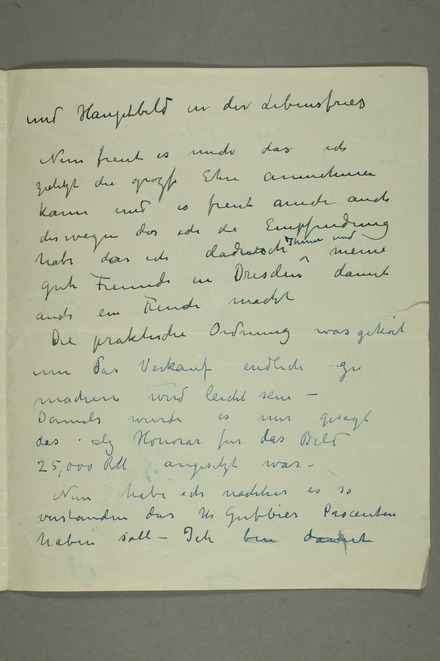 und Hauptbild in der Lebensfries
Nun freut es mich das ich
die große Ehre annehmen
kann und es freut auch
deswegen das ich die Empfindung
habe das ich dadurch Ihnen und meine
gute Freunde in Dresden damit
auch ein Freude macht
Die praktische Ordnung was gehört
um das Verkauf endlich zu
machen wird leicht sein –
Damals wurde es mir gesagt
das Honorar für das Bild
25,000 RM angesetzt war –
Nun habe ich nachher es so
verstanden das Hr Gubbier Procenten
haben soll – Ich bin